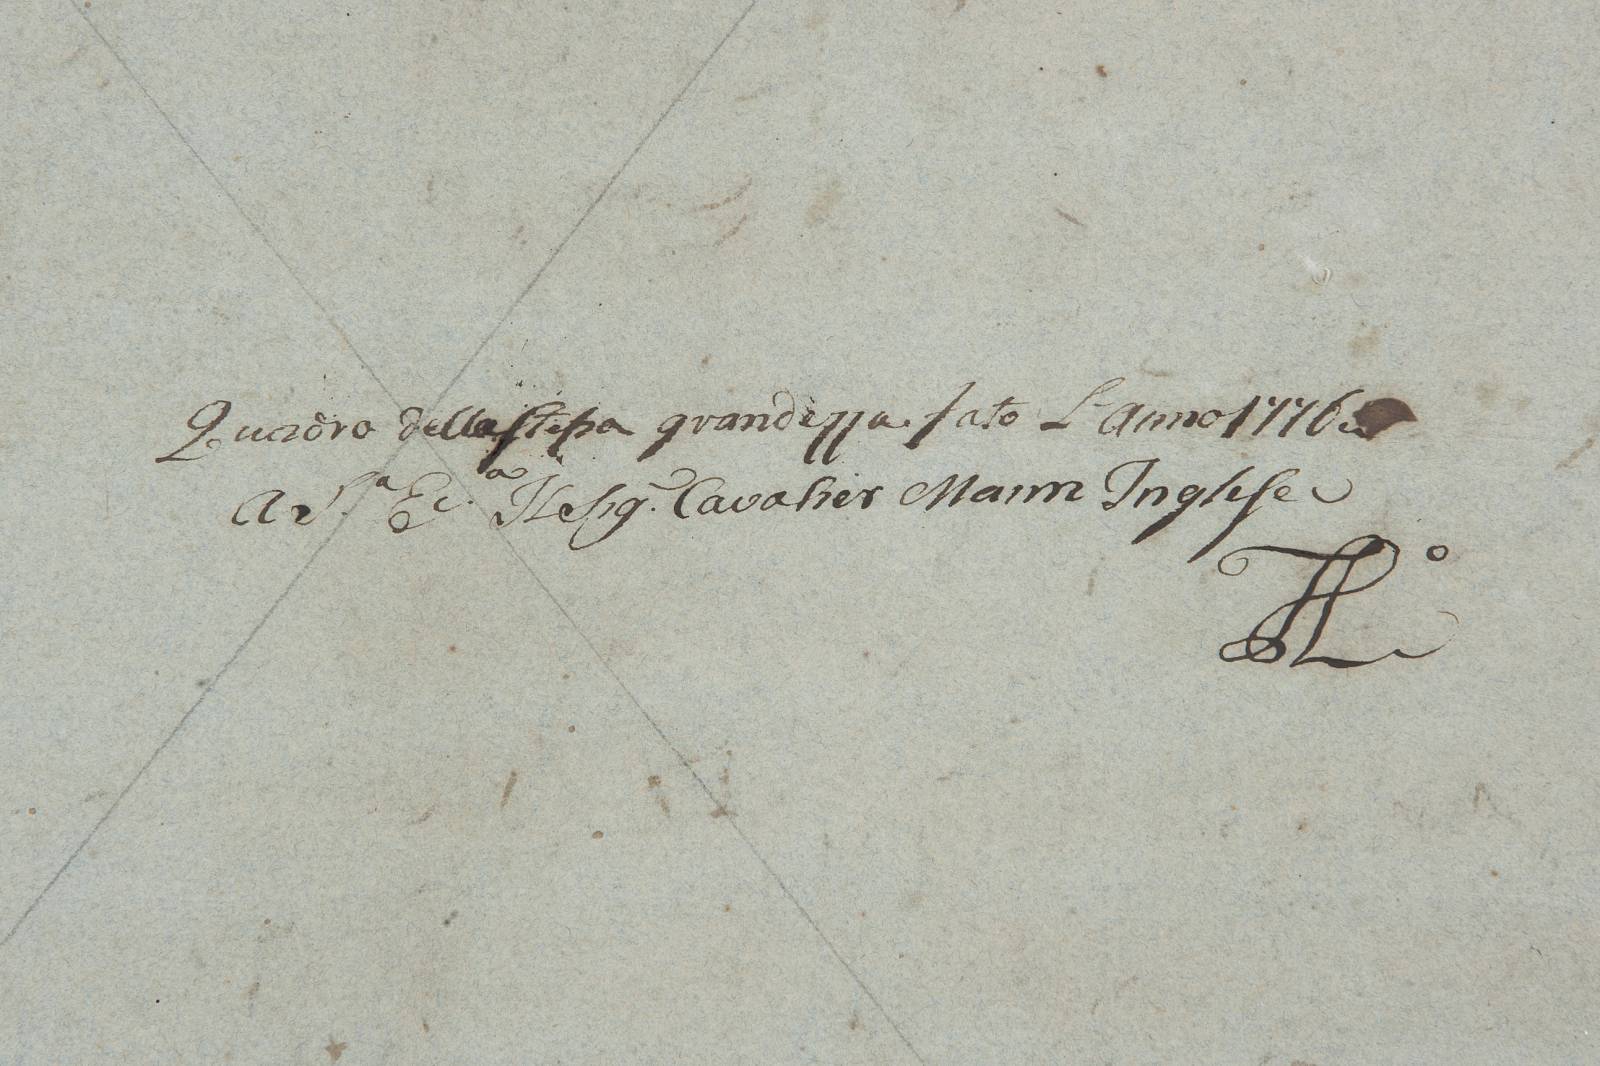 Quadro della stessa grandezza fato L'Anno 1776
A S.ª Ec.ª Il Sig. Cavalier Mann Inglese